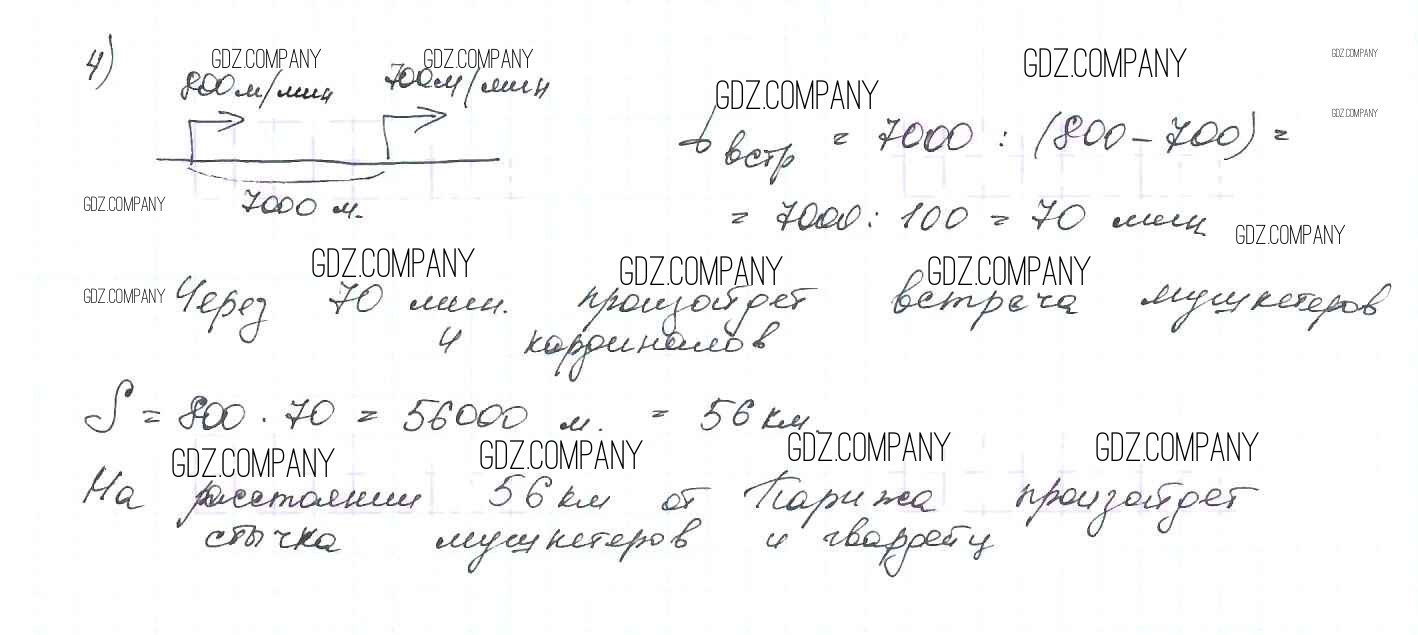 4)
GDZ.COMPANY GDZ.COMPANY GDZ.COMPANY GDZ.COMPANY
800м/мин 700м/мин
GDZ.COMPANY GDZ.COMPANY
tвстр = 7000 : (800 - 700) =
GDZ.COMPANY 7000 м.
= 7000 : 100 = 70 мин
GDZ.COMPANY
GDZ.COMPANY GDZ.COMPANY GDZ.COMPANY
GDZ.COMPANY Через 70 мин. произойдет встреча мушкетеров
и кардиналов
S = 800 · 70 = 56000 м. = 56 км.
GDZ.COMPANY GDZ.COMPANY GDZ.COMPANY GDZ.COMPANY
На расстоянии 56 км от Парижа произойдет
стычка мушкетеров и гвардейц